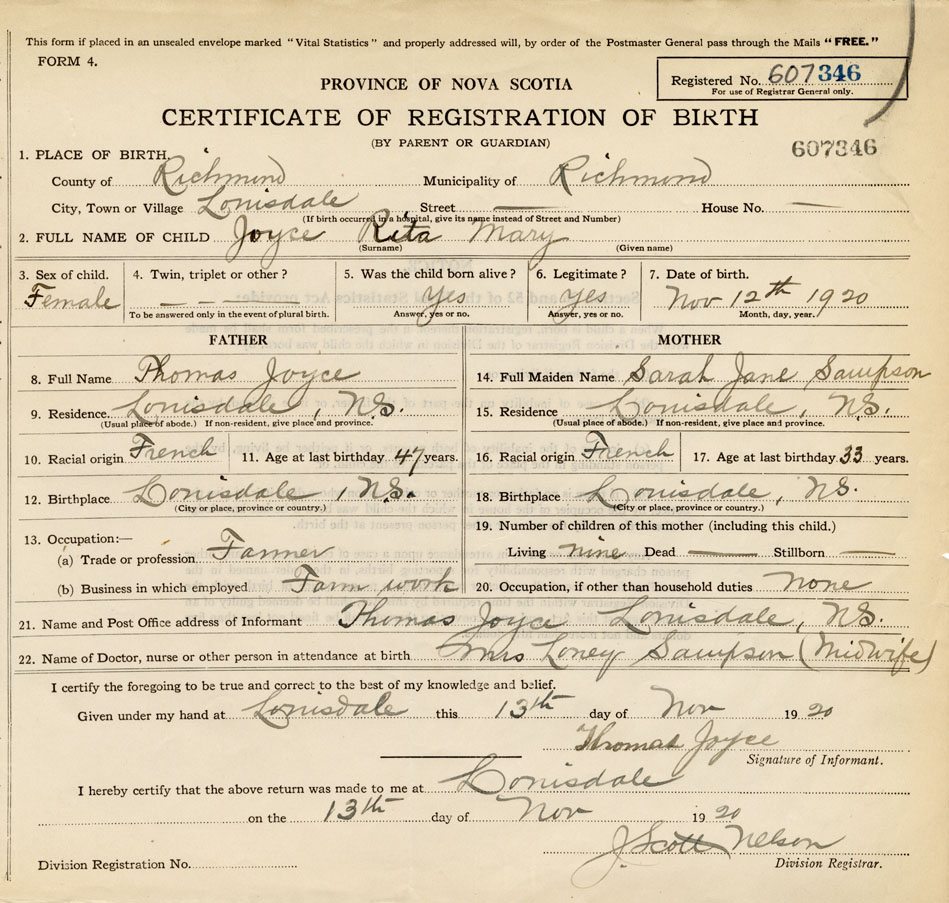 This form if placed in an unsealed envelope marked "Vital Statistics" and properly addressed will, by order of the Postmaster General pass through the Mails "FREE."
FORM 4.
Registered No. 607346
For use of Registrar General only.
PROVINCE OF NOVA SCOTIA
CERTIFICATE OF REGISTRATION OF BIRTH
(BY PARENT OR GUARDIAN)
607346
1. PLACE OF BIRTH
County of Richmond Municipality of Richmond
City, Town or Village Louisdale Street — House No. —
(If birth occurred in a hospital, give its name instead of Street and Number)
2. FULL NAME OF CHILD Joyce Rita Mary
(Surname) (Given name)
3. Sex of child. 4. Twin, triplet or other? 5. Was the child born alive? 6. Legitimate? 7. Date of birth.
Female — — — — Yes Yes Nov 12th 1920
To be answered only in the event of plural birth. Answer, yes or no. Answer, yes or no. Month, day, year.
FATHER MOTHER
8. Full Name Thomas Joyce 14. Full Maiden Name Sarah Jane Sampson
9. Residence. Louisdale, N.S. 15. Residence Louisdale, N.S.
(Usual place of abode.) If non-resident, give place and province. (Usual place of abode.) If non-resident, give place and province.
10. Racial origin French 11. Age at last birthday 47 years. 16. Racial origin French 17. Age at last birthday 33 years.
12. Birthplace Louisdale, N.S. 18. Birthplace Louisdale, N.S.
(City or place, province or country.) (City or place, province or country.)
13. Occupation:— 19. Number of children of this mother (including this child.)
(a) Trade or profession Farmer Living nine Dead — Stillborn —
(b) Business in which employed Farm work 20. Occupation, if other than household duties None
21. Name and Post Office address of Informant Thomas Joyce Louisdale, N.S.
22. Name of Doctor, nurse or other person in attendance at birth Mrs Loney Sampson (Midwife)
I certify the foregoing to be true and correct to the best of my knowledge and belief.
Given under my hand at Louisdale this 13th day of Nov 1920
Thomas Joyce
Signature of Informant.
I hereby certify that the above return was made to me at Louisdale
on the 13th day of Nov 1920
J. Scott Nelson
Division Registration No. Division Registrar.